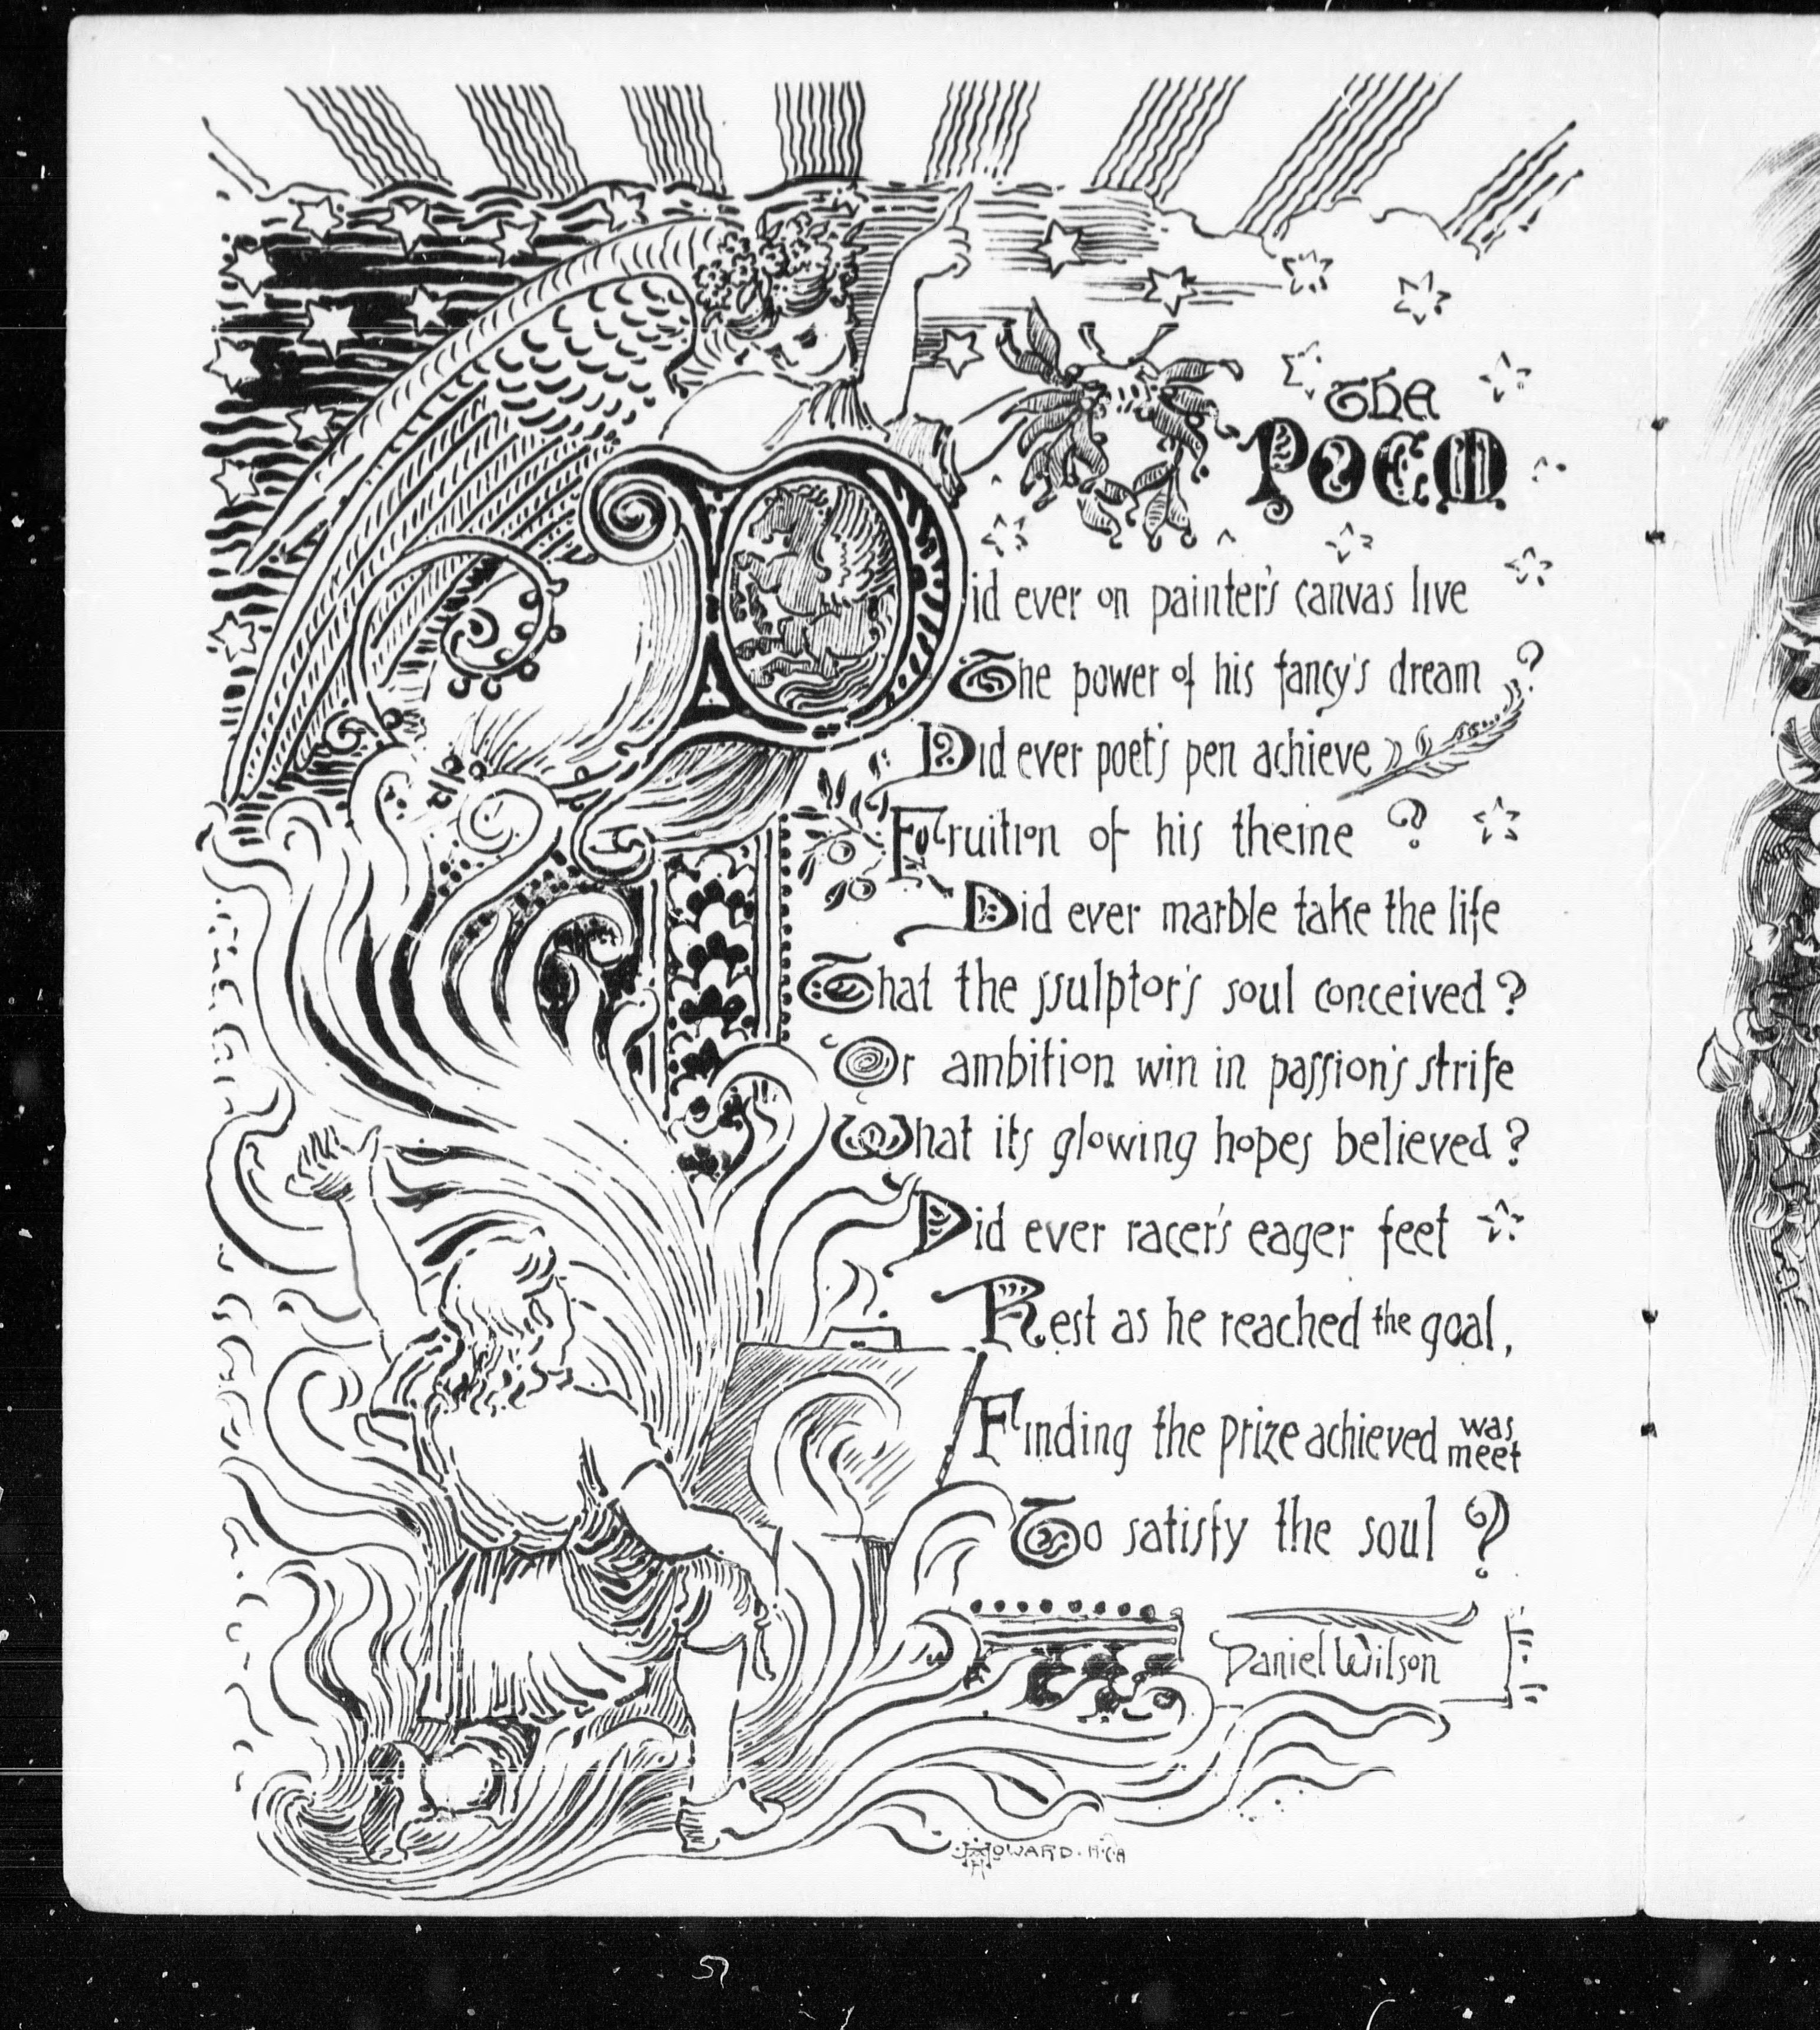 The
POEM
Did ever on painter's canvas live
The power of his fancy's dream ?
Did ever poet's pen achieve
Fruition of his theme ?
Did ever marble take the life
That the sculptor's soul conceived ?
Or ambition win in passion's strife
What its glowing hopes believed ?
Did ever racer's eager feet
Rest as he reached the goal,
Finding the prize achieved was meet
To satisfy the soul ?
Daniel Wilson
HOWARD. R.C.A